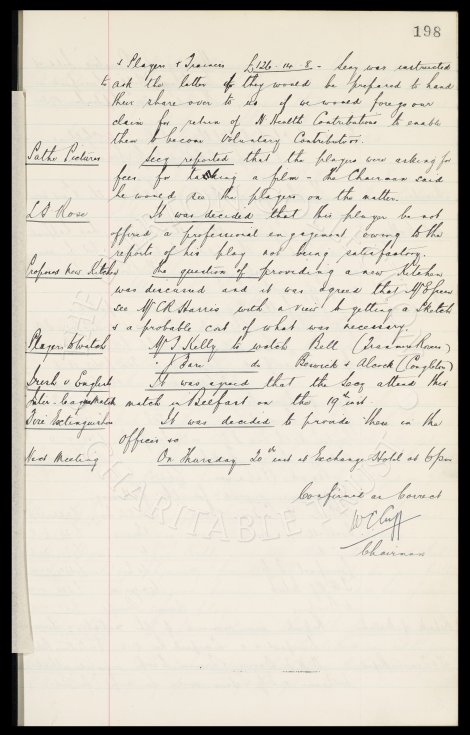 198
& Players & Trainers £126-14-8 - Secy was instructed
to ask the latter if they would be prepared to hand
their share over to us if we would forego our
claim for return of N Health Contributions to enable
them to become Voluntary Contributors.
Pathe Pictures Secy reported that the players were asking for
fees for taking a film - The Chairman said
he would see the players on the matter.
L A Rose It was decided that this player be not
offered a professional engagement owing to the
reports of his play not being satisfactory.
Proposed New Kitchen The question of providing a new Kitchen
was discussed and it was agreed that Mr Green
see Mr C R Harris with a view to getting a Sketch
& a probable cost of what was necessary.
Players to Watch Mr T Kelly to watch Bell (Tranmere Rovers)
" J do Berwick & Alcock (Congleton)
Irish v English It was agreed that the Secy attend this
Inter-league Match match in Belfast on the 19th inst.
Fire Extinguishers It was decided to provide these in the
Offices &c
Next Meeting On Thursday 20th inst at Exchange Hotel at 6pm
Confirmed as Correct
W C Cuff
Chairman
CHARITABLE TRUST